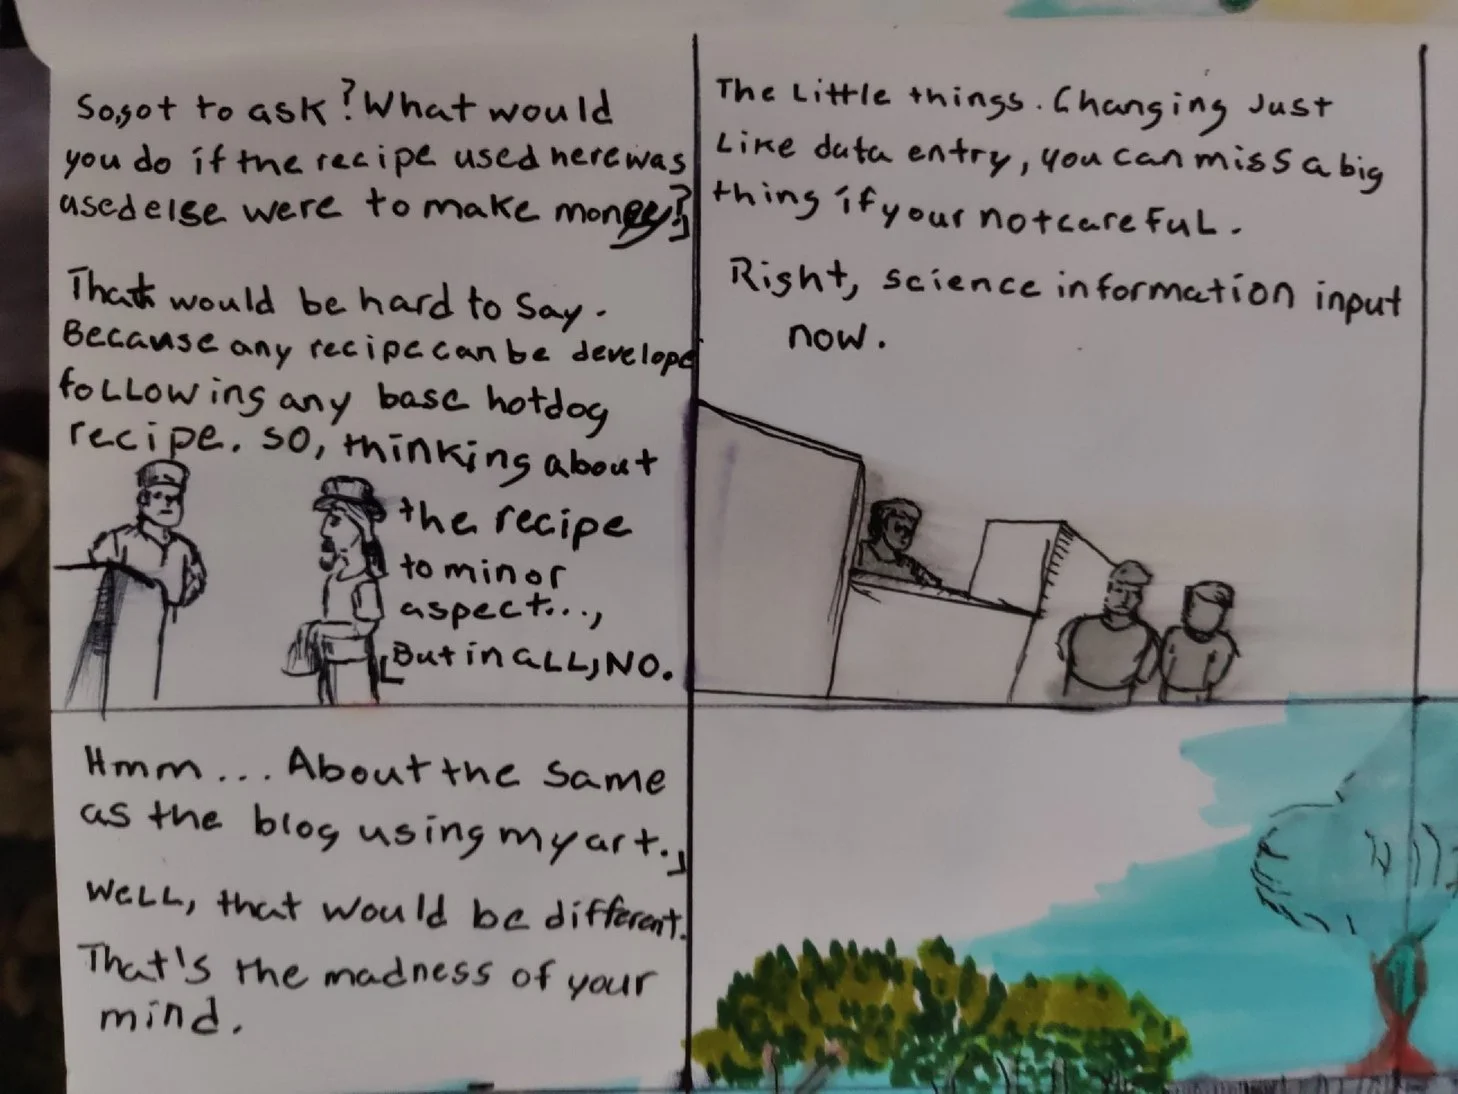 So, got to ask? What would
you do if the recipe used here was
used else were to make money?
That would be hard to say.
Because any recipe can be develope
following any base hotdog
recipe. So, thinking about
the recipe
to minor
aspect...,
But in all, NO.
The Little things. Changing Just
Like data entry, you can miss a big
thing if your not careful.
Right, science information input
now.
Hmm... About the same
as the blog using my art.
Well, that would be different.
That's the madness of your
mind.